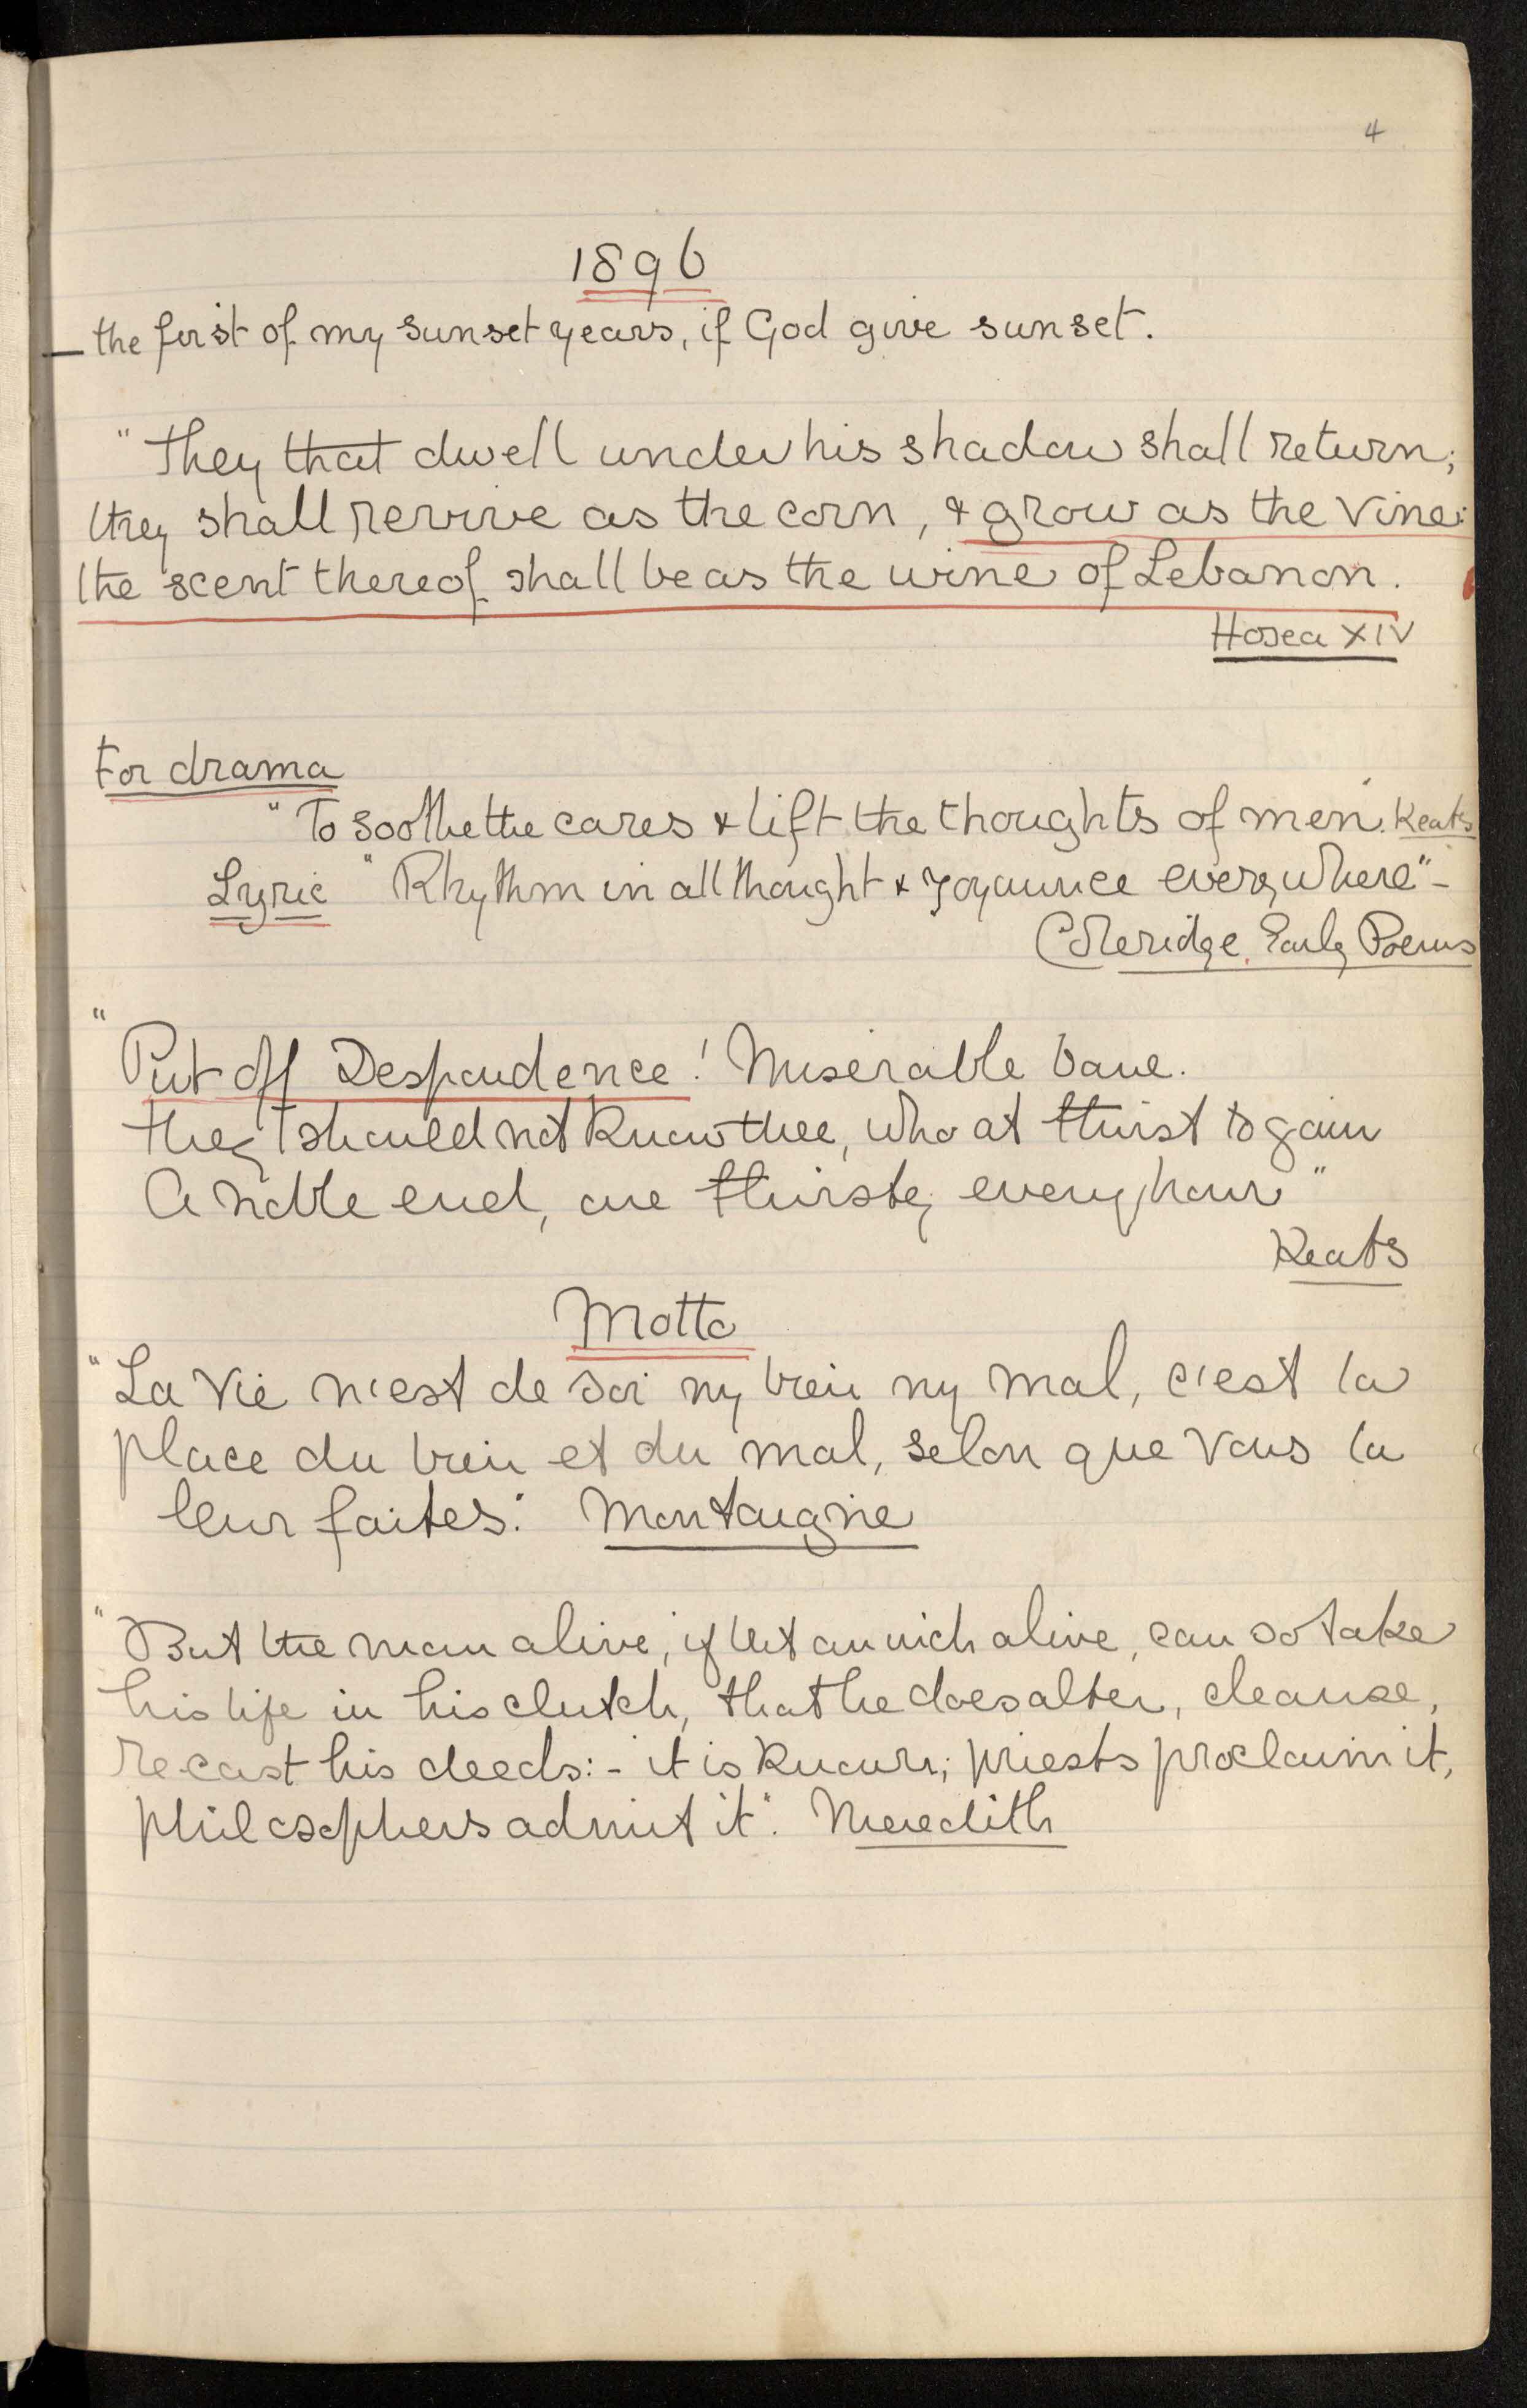 4
1896
— the first of my sunset years, if God give sunset.
"They that dwell under his shadow shall return;
they shall revive as the corn, & grow as the vine:
the scent thereof shall be as the wine of Lebanon.
Hosea XIV
For drama
"To soothe the cares & lift the thoughts of men". Keats
Lyric "Rhythm in all thought & joyaunce everywhere" -
Coleridge. Early Poems
"Put off Despondence! Miserable bane.
They should not know thee, who athirst to gain
A noble end, are thirsty every hour"
Keats
Motto
"La Vie n'est de soi ny bien ny mal, c'est la
place du bien et du mal, selon que vous la
leur faites". Montaigne
"But the man alive, if but an inch alive, can so take
his life in his clutch, that he does alter, cleanse,
recast his deeds: - it is known; priests proclaim it,
philosophers admit it". Meredith